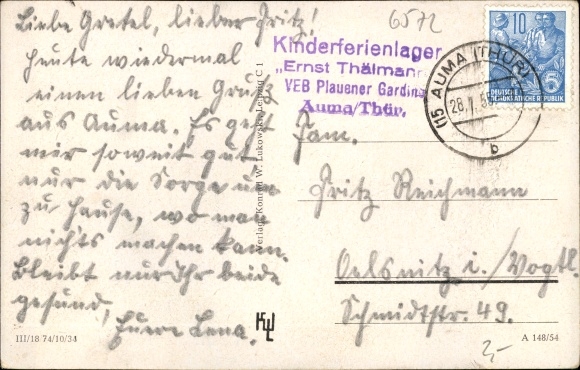 Liebe Gretel, lieber Fritz!
Heute wiedermal
einen lieben Gruß
aus Auma. Es geht
mir soweit gut
nur die Sorge um
zu Hause, wo man
nichts machen kann.
Bleibt nur Ihr beide
gesund,
Euere Lena.
III/18 74/10/34
Verlag Konrad W. Lukowski, Leipzig C 1
KWL
6572
Kinderferienlager
„Ernst Thälmann
VEB Plauener Gardine
Auma/Thür.
10
DEUTSCHE
DEMOKRATISCHE REPUBLIK
(15 AUMA (THÜR)
b
Fam.
Fritz Reichmann
Oelsnitz i./Vogtl.
Schmidtstr. 49.
A 148/54
2,-